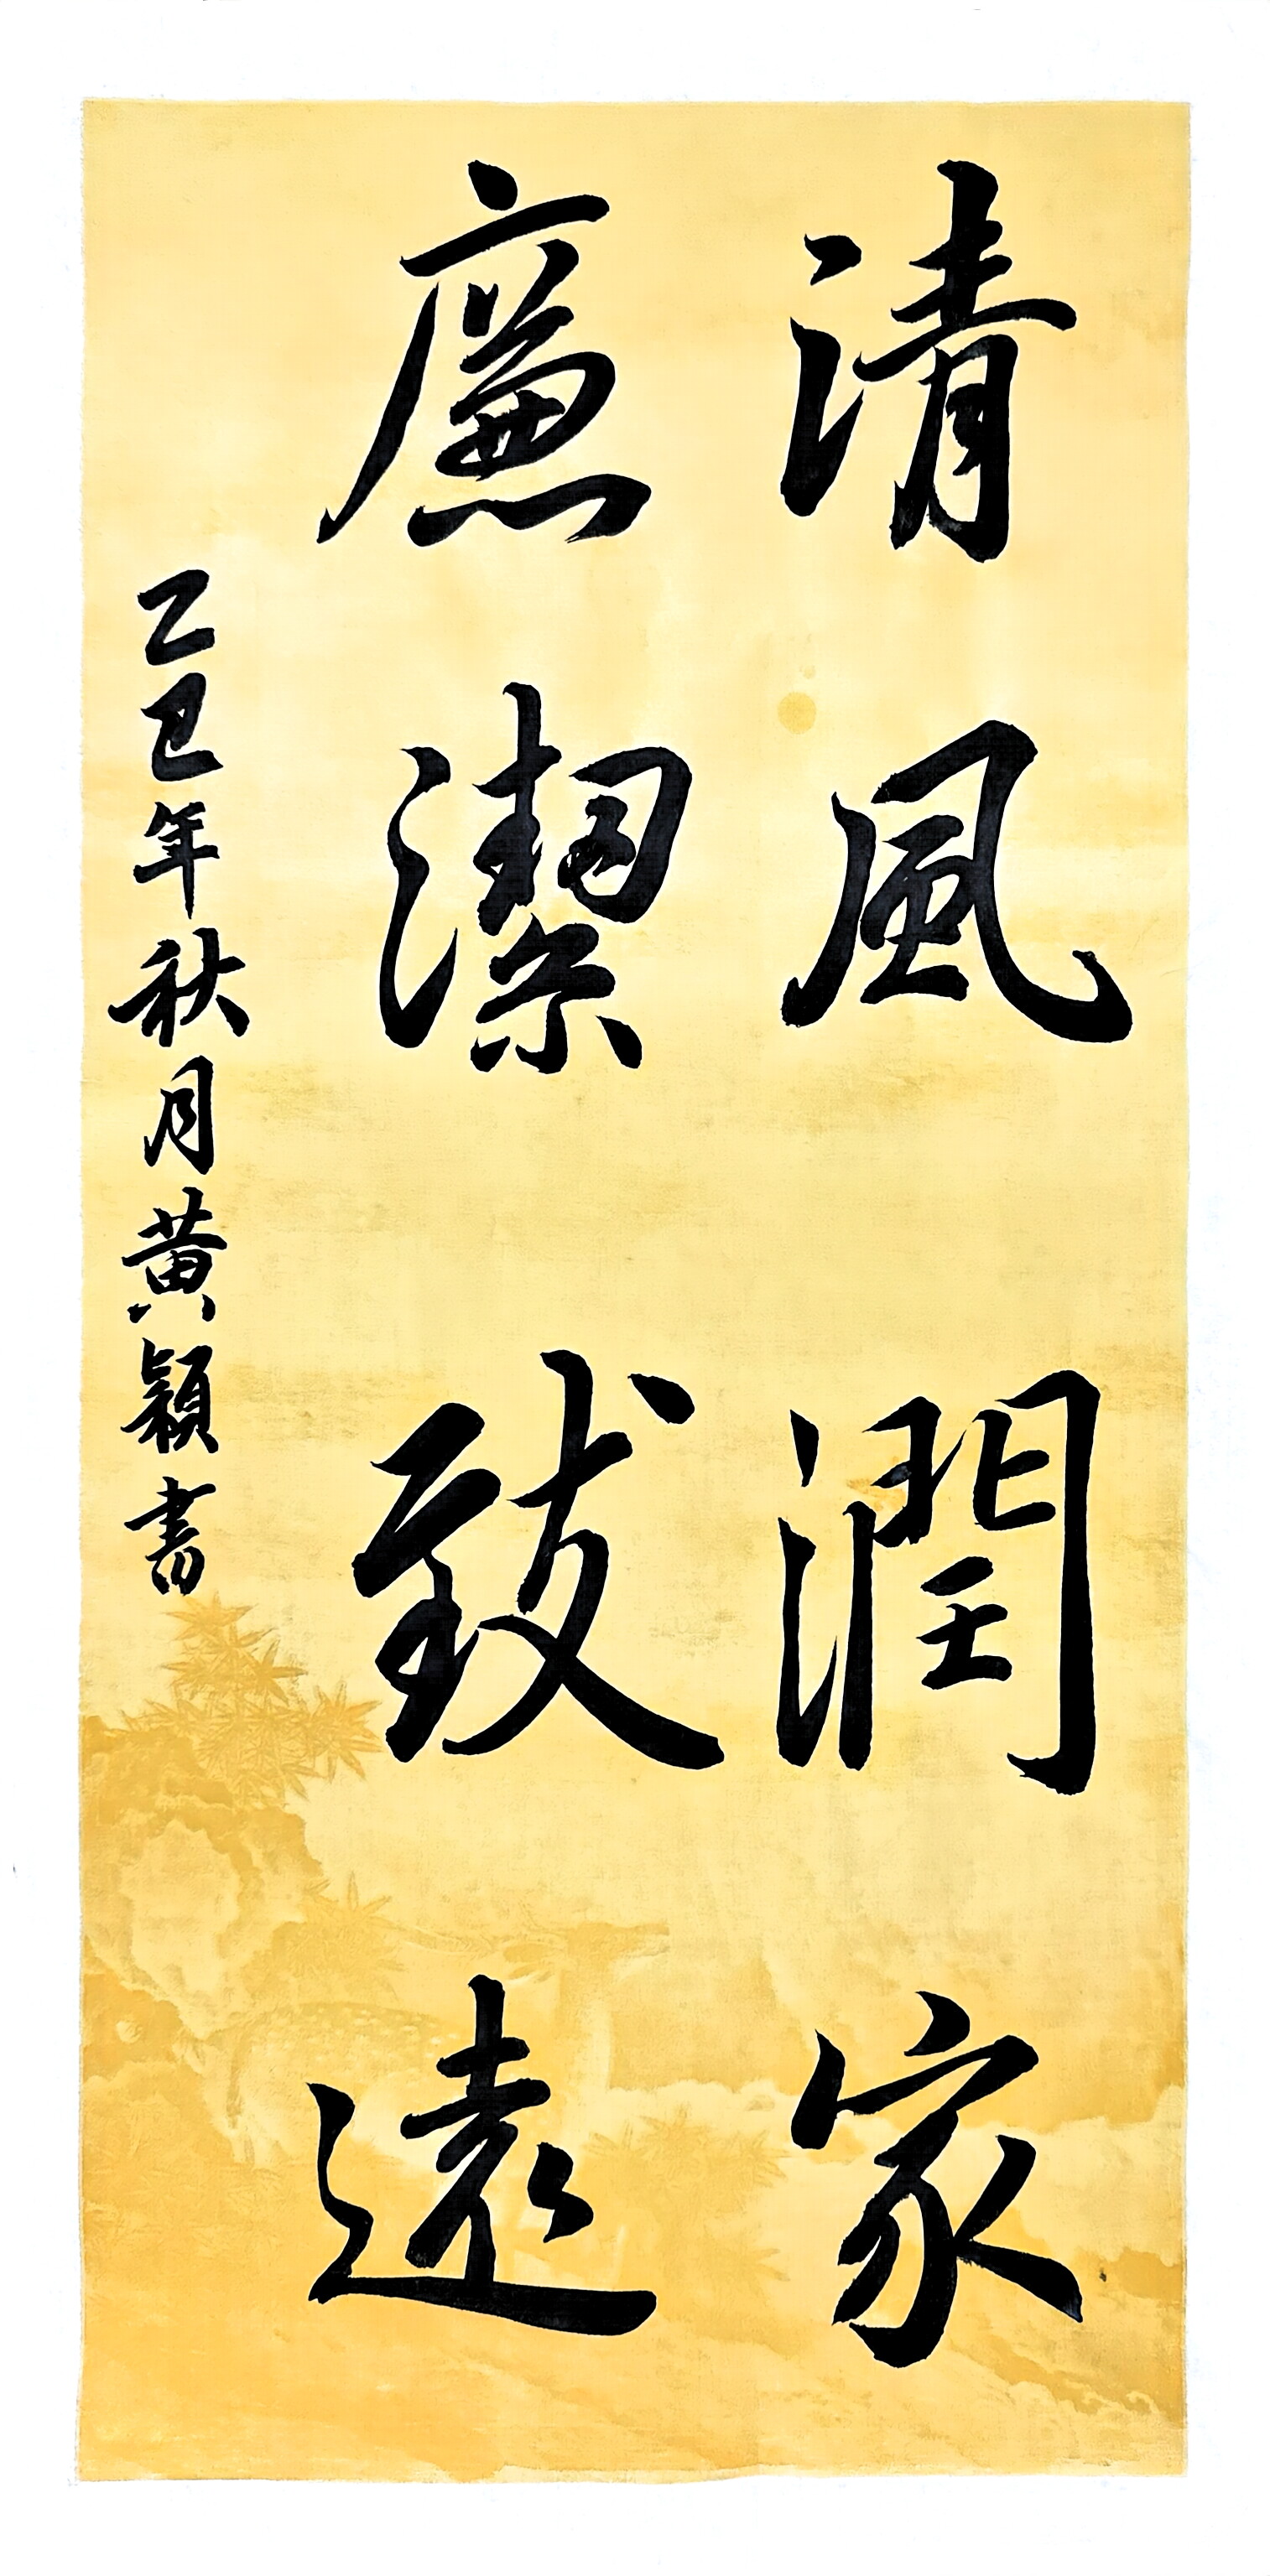 清風潤家
廉潔致遠
乙巳年秋月黄穎書